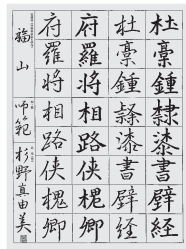 杜稾鍾隷漆書壁經
杜稾鍾隷漆書壁经
府羅将相路俠槐卿
府羅将相路侠槐卿
山 師範 杉野真由美